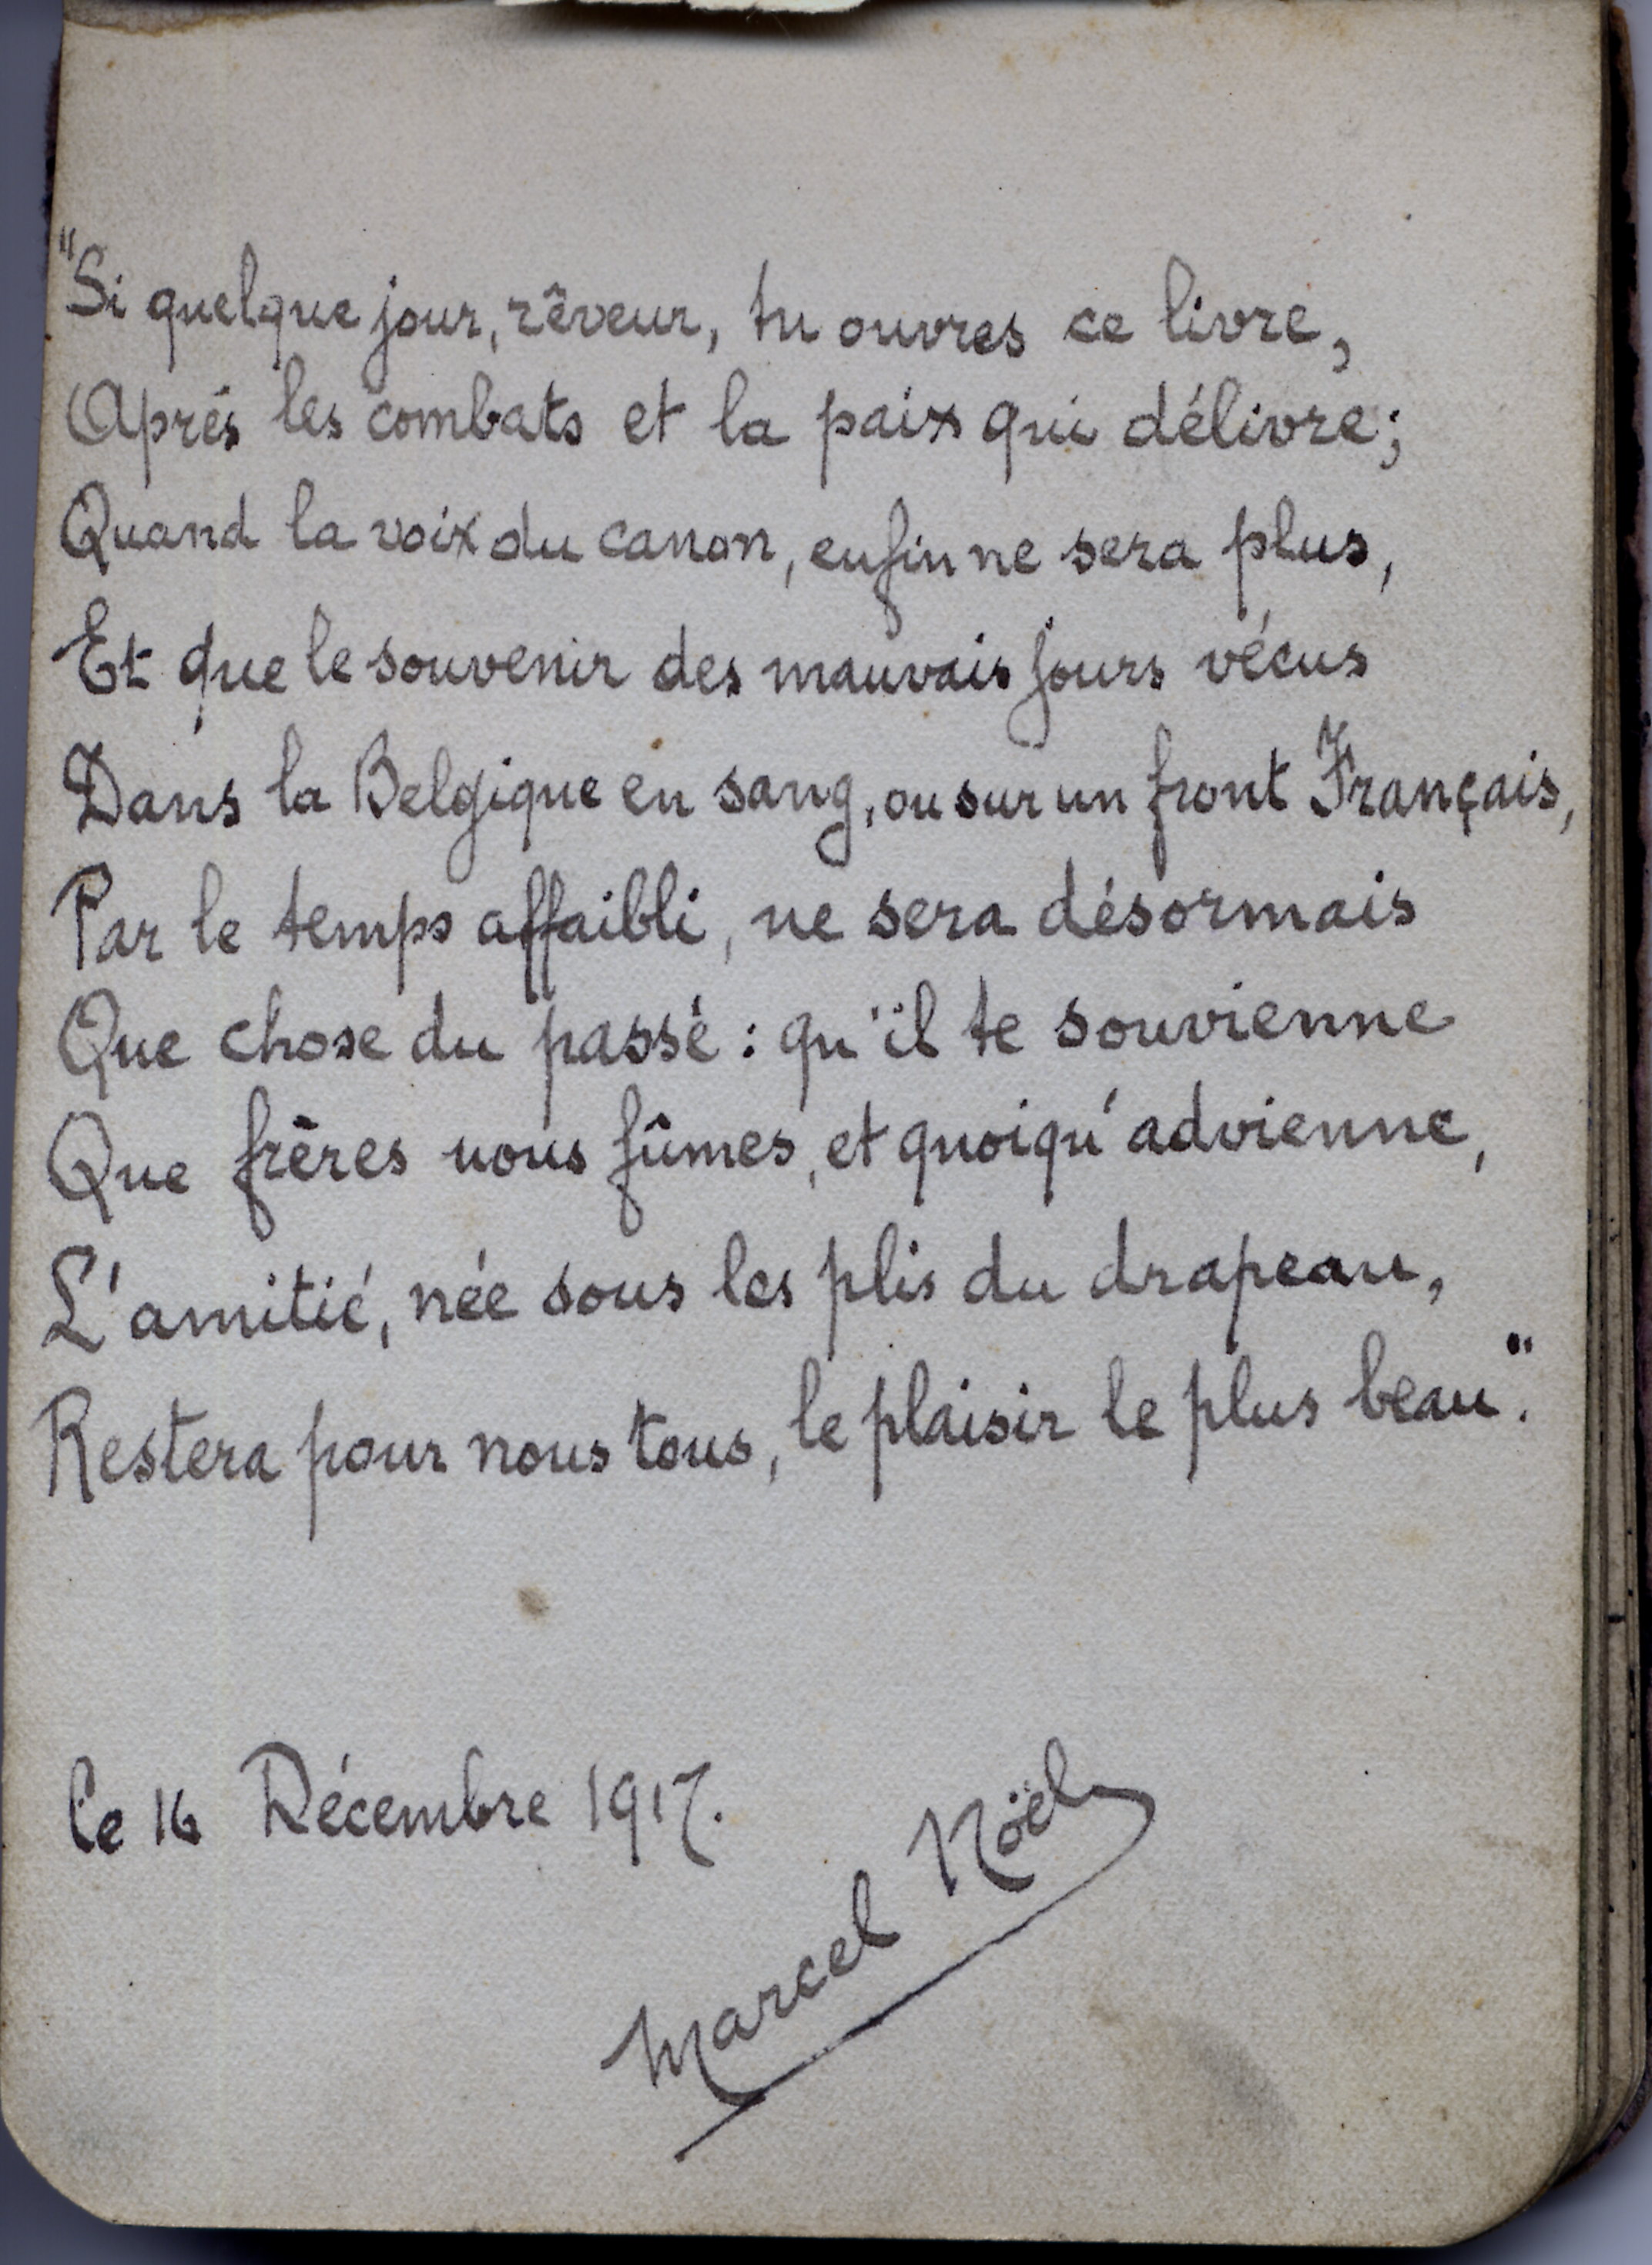 "Si quelque jour, rêveur, tu ouvres ce livre,
Après les combats et la paix qui délivre;
Quand la voix du canon, enfin ne sera plus,
Et que le souvenir des mauvais jours vécus
Dans la Belgique en sang, ou sur un front Français,
Par le temps affaibli, ne sera désormais
Que chose du passé : qu'il te souvienne
Que frères nous fûmes, et quoiqu'advienne,
L'amitié, née sous les plis du drapeau,
Restera pour nous tous, le plaisir le plus beau".
le 16 Décembre 1917.
Marcel Noël